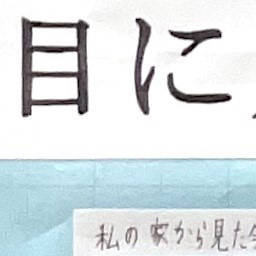 目に
私の家から見た